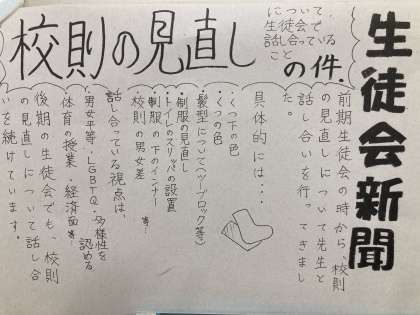 生徒会新聞
校則の見直し
について、
生徒会で
話し合っている
こと
の件.
前期生徒会の時から、校則
の見直しについて先生と
話し合いを行ってきまし
た。
具体的には・・・
・くつ下の色
・くつの色
・髪型について(ツーブロック等)
・制服の見直し
・トイレのスリッパの設置
・制服の下のインナー
・校則の男女差 等…
話し合っている視点は、
・男女平等・LGBTQ・多様性を
認める
・体育の授業・経済面 等…
後期の生徒会でも、校則
の見直しについて話し合
いを続けています。